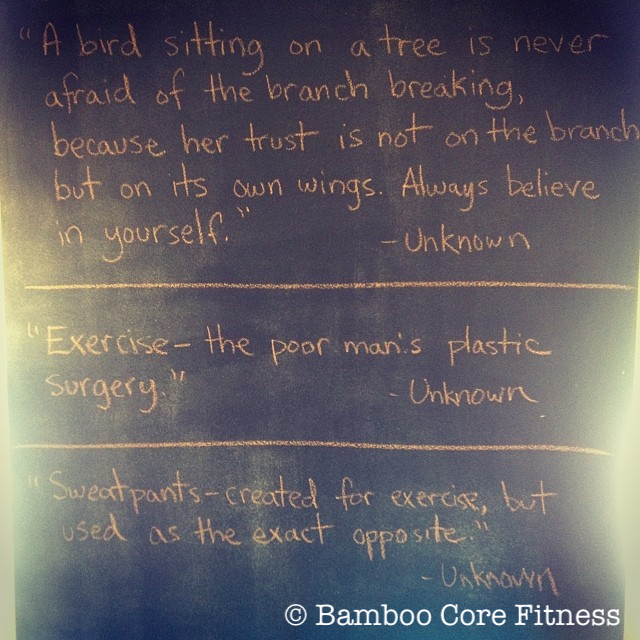 "A bird sitting on a tree is never
afraid of the branch breaking,
because her trust is not on the branch
but on its own wings. Always believe
in yourself."
-Unknown
"Exercise- the poor man's plastic
surgery."
-Unknown
"Sweatpants-created for exercise, but
used as the exact opposite."
-Unknown
© Bamboo Core Fitness